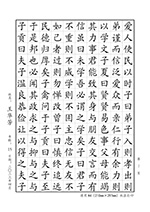 愛人使民以時子曰弟子入則孝出則
弟謹而信泛愛眾而親仁行有餘力則
以學文子夏曰賢賢易色事父母能竭
其力事君能致其身與朋友交言而有
信雖曰未學吾必謂之學矣子曰君子
不重則不威學則不固主忠信無友不
如己者過則勿憚改曾子曰慎終追遠
民德歸厚矣子禽問於子貢曰夫子至
於是邦也必聞其政求之與抑與之與
子貢曰夫子溫良恭儉讓以得之夫子